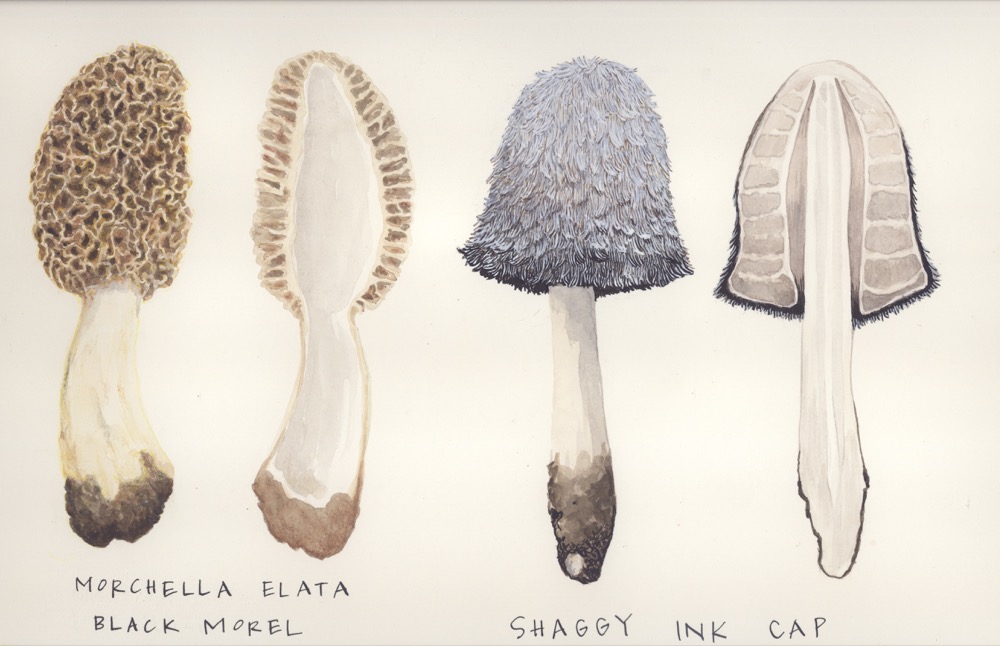 MORCHELLA ELATA
BLACK MOREL
SHAGGY INK CAP